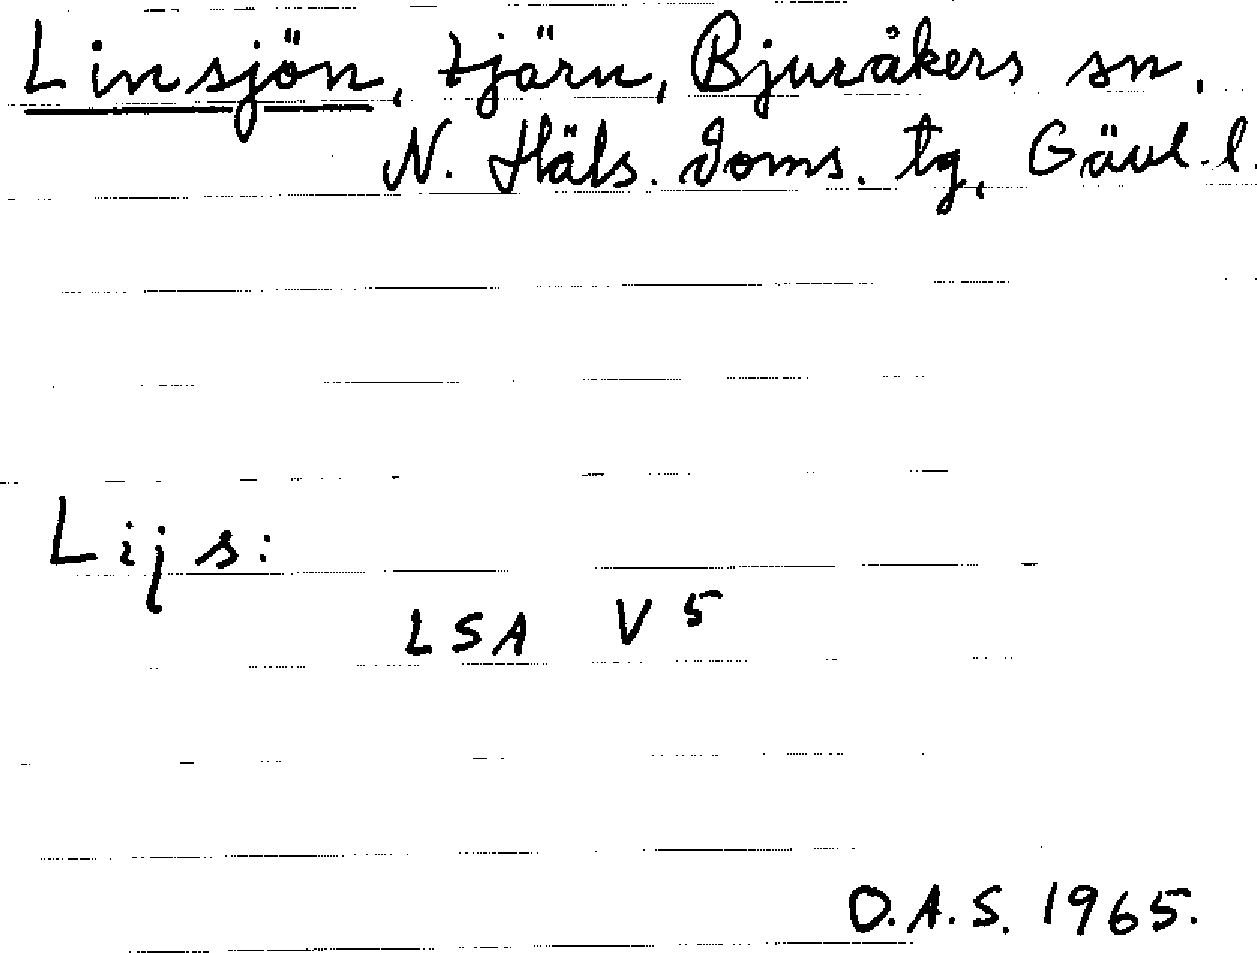 Linsjön, tjärn, Bjuråkers sn,
N. Häls. doms. tg, Gävl. l.
Lijs:
LSA V 5
O.A.S. 1965.